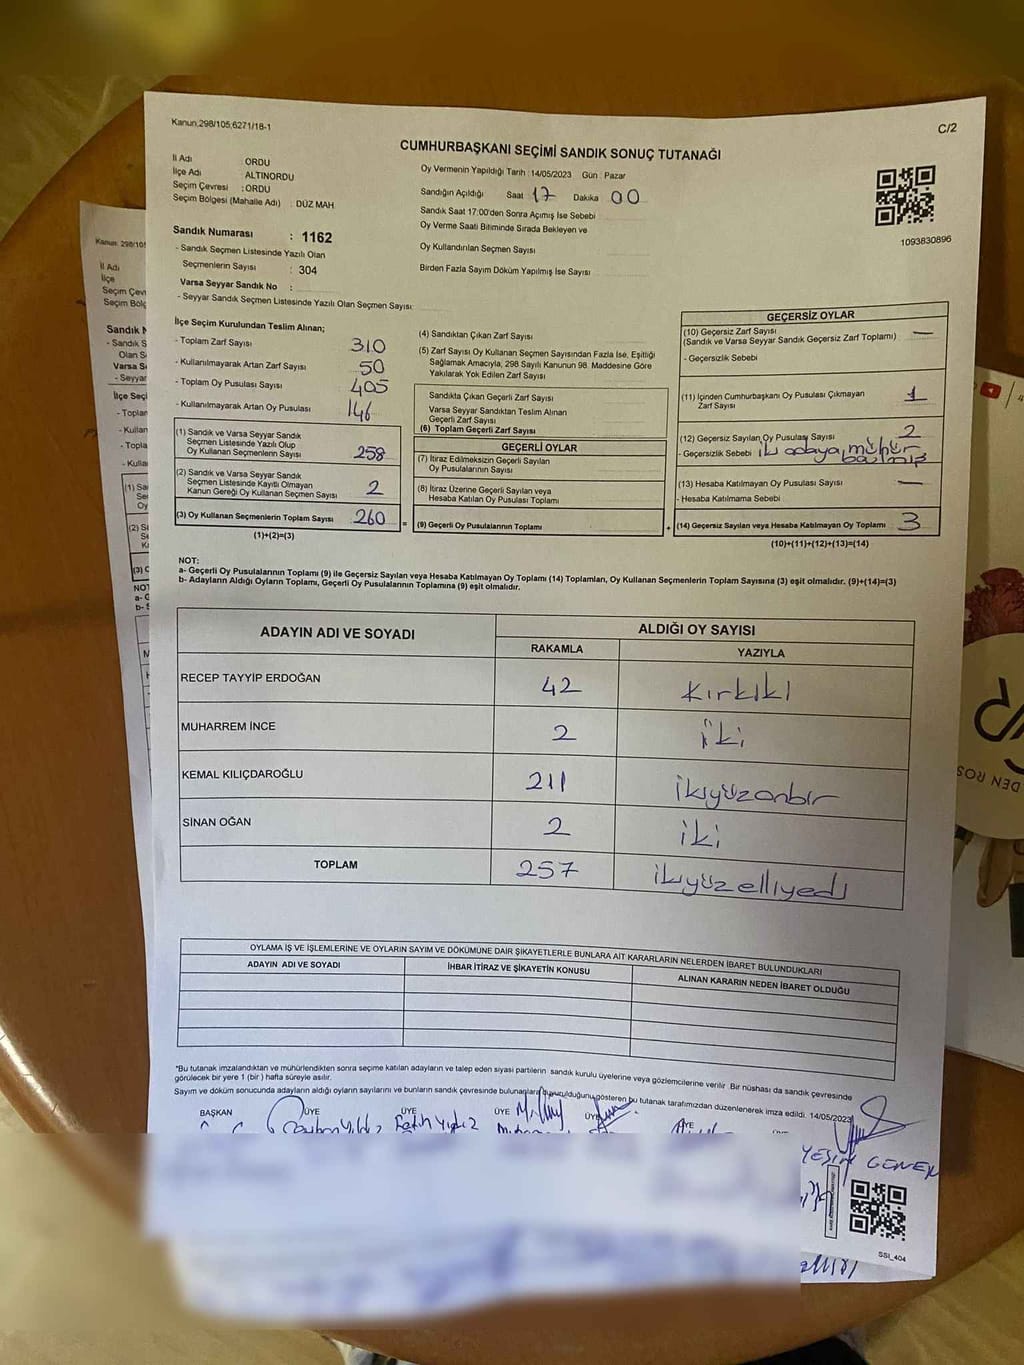 Kanun.298/105,6271/18-1
C/2
CUMHURBAŞKANI SEÇİMİ SANDIK SONUÇ TUTANAĞI
İl Adı : ORDU
İlçe Adı : ALTINORDU
Seçim Çevresi : ORDU
Seçim Bölgesi (Mahalle Adı) : DÜZ MAH
Oy Vermenin Yapıldığı Tarih : 14/05/2023 Gün : Pazar
Sandığın Açıldığı Saat 17 Dakika 00
Sandık Saat 17:00'den Sonra Açılmış İse Sebebi
Oy Verme Saati Bitiminde Sırada Bekleyen ve
Oy Kullandırılan Seçmen Sayısı
Birden Fazla Sayım Döküm Yapılmış İse Sayısı
1093830896
Sandık Numarası : 1162
- Sandık Seçmen Listesinde Yazılı Olan
Seçmenlerin Sayısı : 304
Varsa Seyyar Sandık No :
- Seyyar Sandık Seçmen Listesinde Yazılı Olan Seçmen Sayısı:
İlçe Seçim Kurulundan Teslim Alınan;
- Toplam Zarf Sayısı 310
- Kullanılmayarak Artan Zarf Sayısı 50
- Toplam Oy Pusulası Sayısı 405
- Kullanılmayarak Artan Oy Pusulası 146
(1) Sandık ve Varsa Seyyar Sandık
Seçmen Listesinde Yazılı Olup
Oy Kullanan Seçmenlerin Sayısı 258
(2) Sandık ve Varsa Seyyar Sandık
Seçmen Listesinde Kayıtlı Olmayan
Kanun Gereği Oy Kullanan Seçmen Sayısı 2
(3) Oy Kullanan Seçmenlerin Toplam Sayısı 260 =
(1)+(2)=(3)
(4) Sandıktan Çıkan Zarf Sayısı
(5) Zarf Sayısı Oy Kullanan Seçmen Sayısından Fazla İse, Eşitliği
Sağlamak Amacıyla, 298 Sayılı Kanunun 98. Maddesine Göre
Yakılarak Yok Edilen Zarf Sayısı
Sandıkta Çıkan Geçerli Zarf Sayısı
Varsa Seyyar Sandıktan Teslim Alınan
Geçerli Zarf Sayısı
(6) Toplam Geçerli Zarf Sayısı
GEÇERLİ OYLAR
(7) İtiraz Edilmeksizin Geçerli Sayılan
Oy Pusulalarının Sayısı
(8) İtiraz Üzerine Geçerli Sayılan veya
Hesaba Katılan Oy Pusulası Toplamı
(9) Geçerli Oy Pusulalarının Toplamı +
GEÇERSİZ OYLAR
(10) Geçersiz Zarf Sayısı —
(Sandık ve Varsa Seyyar Sandık Geçersiz Zarf Toplamı)
- Geçersizlik Sebebi
(11) İçinden Cumhurbaşkanı Oy Pusulası Çıkmayan
Zarf Sayısı 1
(12) Geçersiz Sayılan Oy Pusulası Sayısı 2
- Geçersizlik Sebebi iki adaya mühür
basılmış
(13) Hesaba Katılmayan Oy Pusulası Sayısı —
- Hesaba Katılmama Sebebi
(14) Geçersiz Sayılan veya Hesaba Katılmayan Oy Toplamı 3
(10)+(11)+(12)+(13)=(14)
NOT:
a- Geçerli Oy Pusulalarının Toplamı (9) ile Geçersiz Sayılan veya Hesaba Katılmayan Oy Toplamı (14) Toplamları, Oy Kullanan Seçmenlerin Toplam Sayısına (3) eşit olmalıdır. (9)+(14)=(3)
b- Adayların Aldığı Oyların Toplamı, Geçerli Oy Pusulalarının Toplamına (9) eşit olmalıdır.
ADAYIN ADI VE SOYADI ALDIĞI OY SAYISI
RAKAMLA YAZIYLA
RECEP TAYYİP ERDOĞAN 42 Kırkiki
MUHARREM İNCE 2 iki
KEMAL KILIÇDAROĞLU 211 ikiyüzonbir
SİNAN OĞAN 2 iki
TOPLAM 257 ikiyüzelliyedi
OYLAMA İŞ VE İŞLEMLERİNE VE OYLARIN SAYIM VE DÖKÜMÜNE DAİR ŞİKAYETLERLE BUNLARA AİT KARARLARIN NELERDEN İBARET BULUNDUKLARI
ADAYIN ADI VE SOYADI İHBAR İTİRAZ VE ŞİKAYETİN KONUSU ALINAN KARARIN NEDEN İBARET OLDUĞU
*Bu tutanak imzalandıktan ve mühürlendikten sonra seçime katılan adayların ve talep eden siyasi partilerin sandık kurulu üyelerine veya gözlemcilerine verilir. Bir nüshası da sandık çevresinde
görülecek bir yere 1 (bir) hafta süreyle asılır.
Sayım ve döküm sonucunda adayların aldığı oyların sayılarını ve bunların sandık çevresinde bulunanlara duyurulduğunu gösteren bu tutanak tarafımızdan düzenlenerek imza edildi. 14/05/2023
BAŞKAN ÜYE ÜYE ÜYE ÜYE ÜYE
YEŞİM
SSI_404